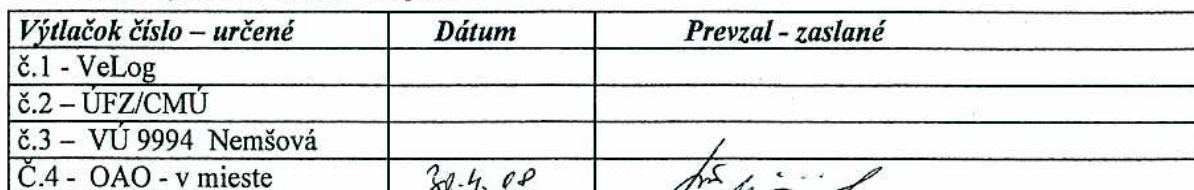 Výtlačok číslo – určené Dátum Prevzal - zaslané
č.1 - VeLog
č.2 – ÚFZ/CMÚ
č.3 – VÚ 9994 Nemšová
Č.4 - OAO - v mieste 30.4.08